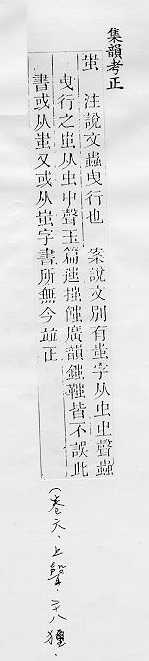 集韻考正
䖤 注說文蟲曳行也 案說文別有蚩字从虫㞢聲蟲
曳行之䖤从虫屮聲玉篇廣韻皆不誤此
書或从蚩又或从蚩字書所無今並正
(卷六、上聲、二八獮、